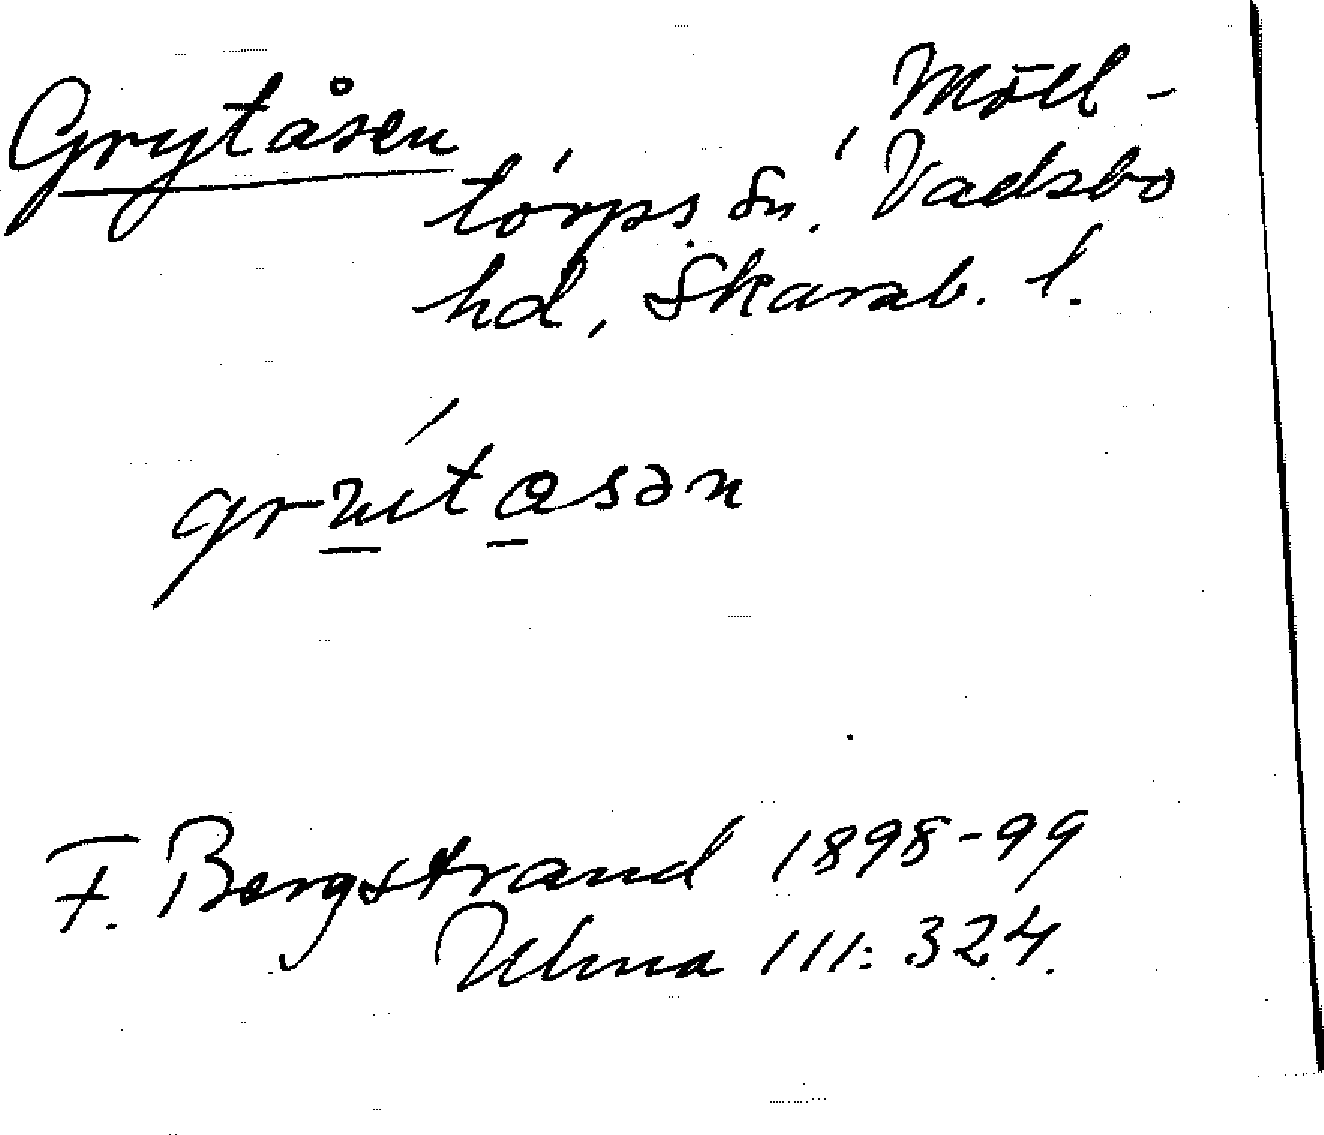 Grytåsen, Möll-
torps sn, Vadsbo
hd, Skarab. l.
F. Bergstrand 1898-99
Ulma 111:324.